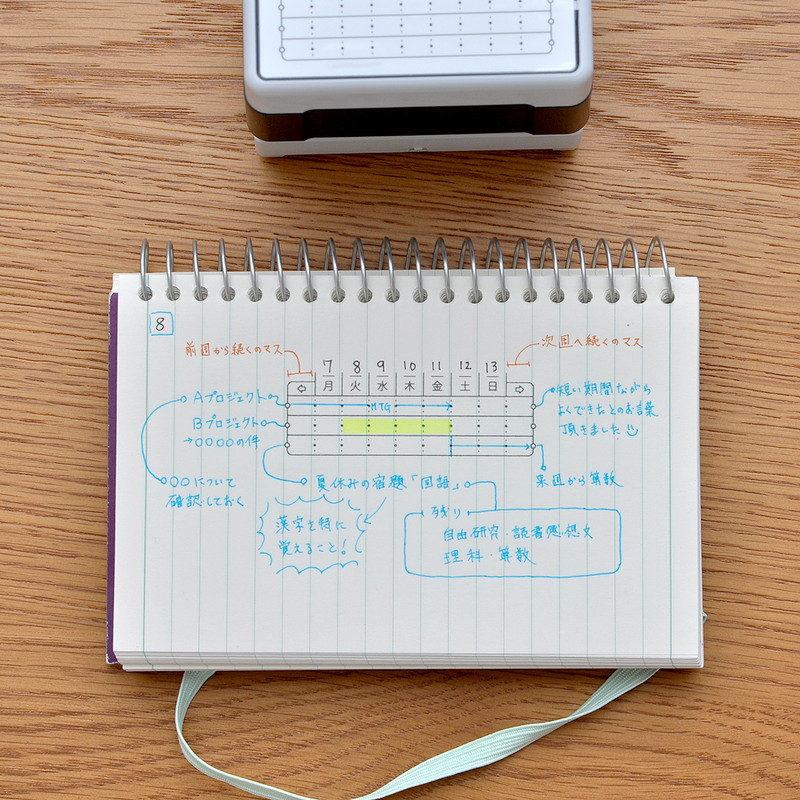 8
前週から続くのマス
次週へ続くのマス
7 8 9 10 11 12 13
⇦ 月 火 水 木 金 土 日 ⇨
Aプロジェクト
MTG
Bプロジェクト
→○○○○の件
短い期間ながら
よくできたとのお言葉
頂きました
○○について
確認しておく
夏休みの宿題「国語」
来週から算数
漢字を特に
覚えること!
残り
自由研究・読書感想文
理科・算数